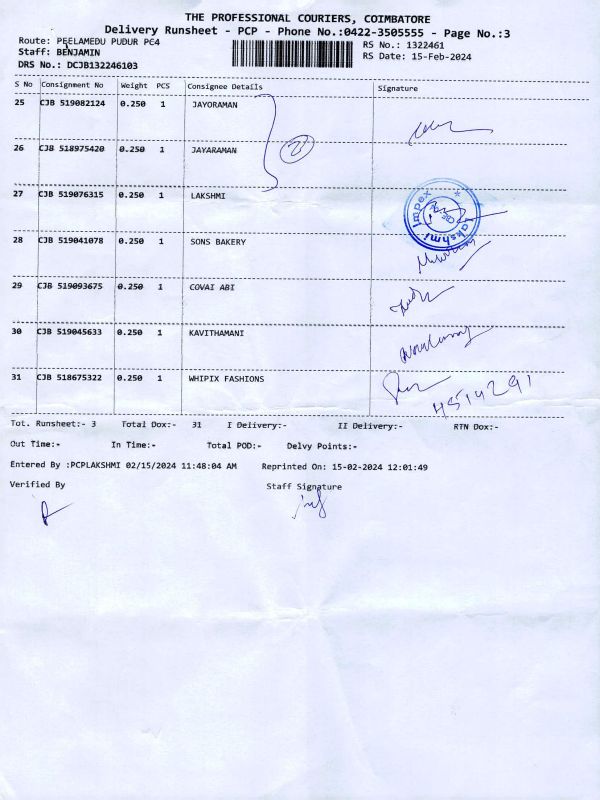 THE PROFESSIONAL COURIERS, COIMBATORE
Delivery Runsheet - PCP - Phone No.:0422-3505555 - Page No.:3
Route: PEELAMEDU PUDUR PC4
Staff: BENJAMIN
DRS No.: DCJB132246103
RS No.: 1322461
RS Date: 15-Feb-2024
S No Consignment No Weight PCS Consignee Details Signature
25 CJB 519082124 0.250 1 JAYORAMAN
2
26 CJB 518975420 0.250 1 JAYARAMAN
27 CJB 519076315 0.250 1 LAKSHMI
Lakshmi Impex
28 CJB 519041078 0.250 1 SONS BAKERY
29 CJB 519093675 0.250 1 COVAI ABI
30 CJB 519045633 0.250 1 KAVITHAMANI
31 CJB 518675322 0.250 1 WHIPIX FASHIONS
4514291
Tot. Runsheet:- 3 Total Dox:- 31 I Delivery:- II Delivery:- RTN Dox:-
Out Time:- In Time:- Total POD:- Delvy Points:-
Entered By :PCPLAKSHMI 02/15/2024 11:48:04 AM Reprinted On: 15-02-2024 12:01:49
Verified By Staff Signature